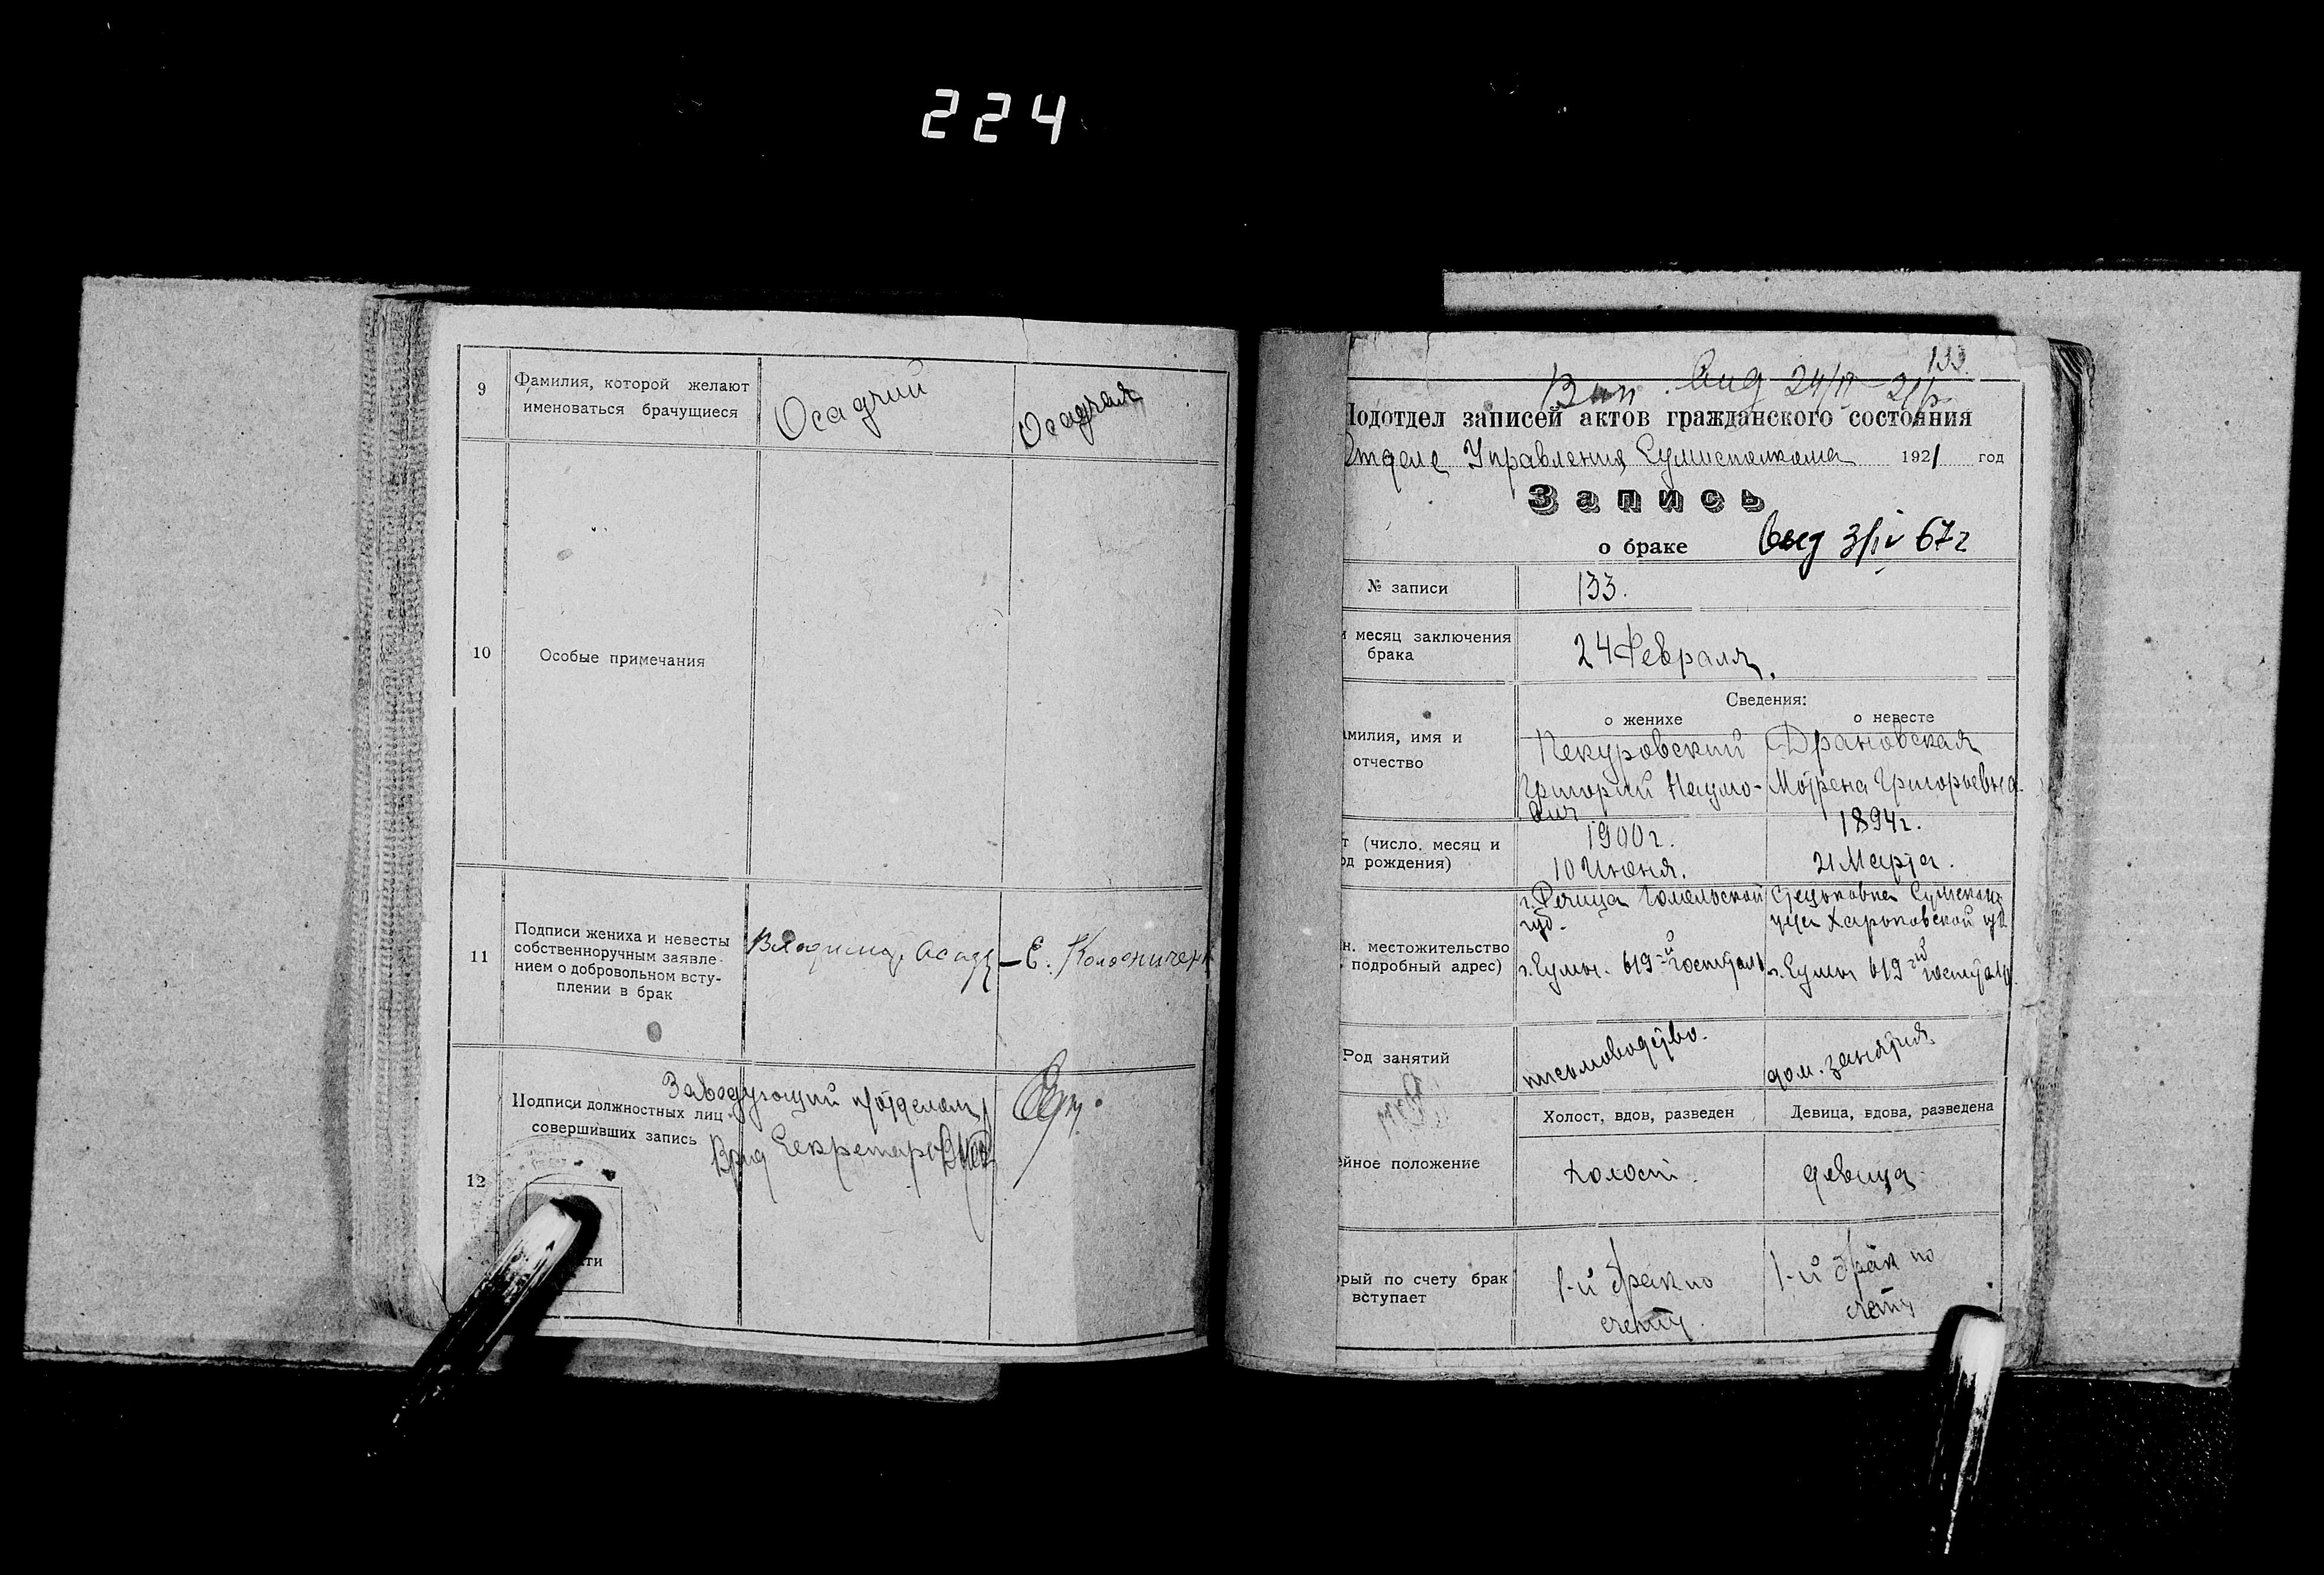 224
9
Фамилия, которой желают
именоваться брачущиеся
Осадчий
Осадчая
10
Особые примечания
11
Подписи жениха и невесты
собственноручным заявле-
нием о добровольном всту-
плении в брак
Владимир Осадч
Е. Колесничен
Заведующий п/отделом
Подписи должностных лиц
совершивших запись
Врид Секретарь
12
133
24/II 21
Подотдел записей актов гражданского состояния
Отдела Управления Сумисполкома 1921 год
Запись
о браке
выд 3/IV 67г
№ записи
133.
и месяц заключения
брака
24 Февраля.
Сведения:
о женихе
о невесте
амилия, имя и
отчество
Пекуровский
Григорий Наумо-
вич
Драновская
Мотрена Григорьевна.
т (число. месяц и
од рождения)
1900г.
10 Июня.
1894г.
21 Марта.
н. местожительство
подробный адрес)
г. Речица Гомельской
губ.
г. Сумы. 619-й госпиталь
Сумского
уезда Харьковской губ
г. Сумы 619-й госпиталь.
Род занятий
письмоводство.
дом. занятия
Холост, вдов, разведен
Девица, вдова, разведена
ейное положение
холост.
девица.
орый по счету брак
вступает
1-й брак по
счету.
1-й брак по
счету